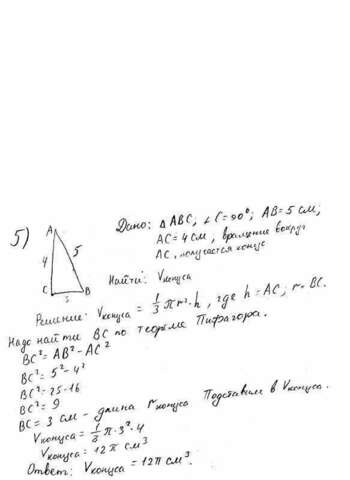 5)
A
4
5
C
3
B
Дано: △ ABC, ∠C=90°; AB=5 см;
AC=4 см, вращение вокруг
AC, получается конус
Найти: Vконуса
Решение: Vконуса = 1/3 πr²·h, где h=AC; r=BC.
Надо найти BC по теореме Пифагора.
BC²=AB²-AC²
BC²=5²-4²
BC²=25-16
BC²=9
BC=3 см - длина rконуса Подставим в Vконуса.
Vконуса=1/3 π·3²·4
Vконуса=12π см³
Ответ: Vконуса=12π см³.